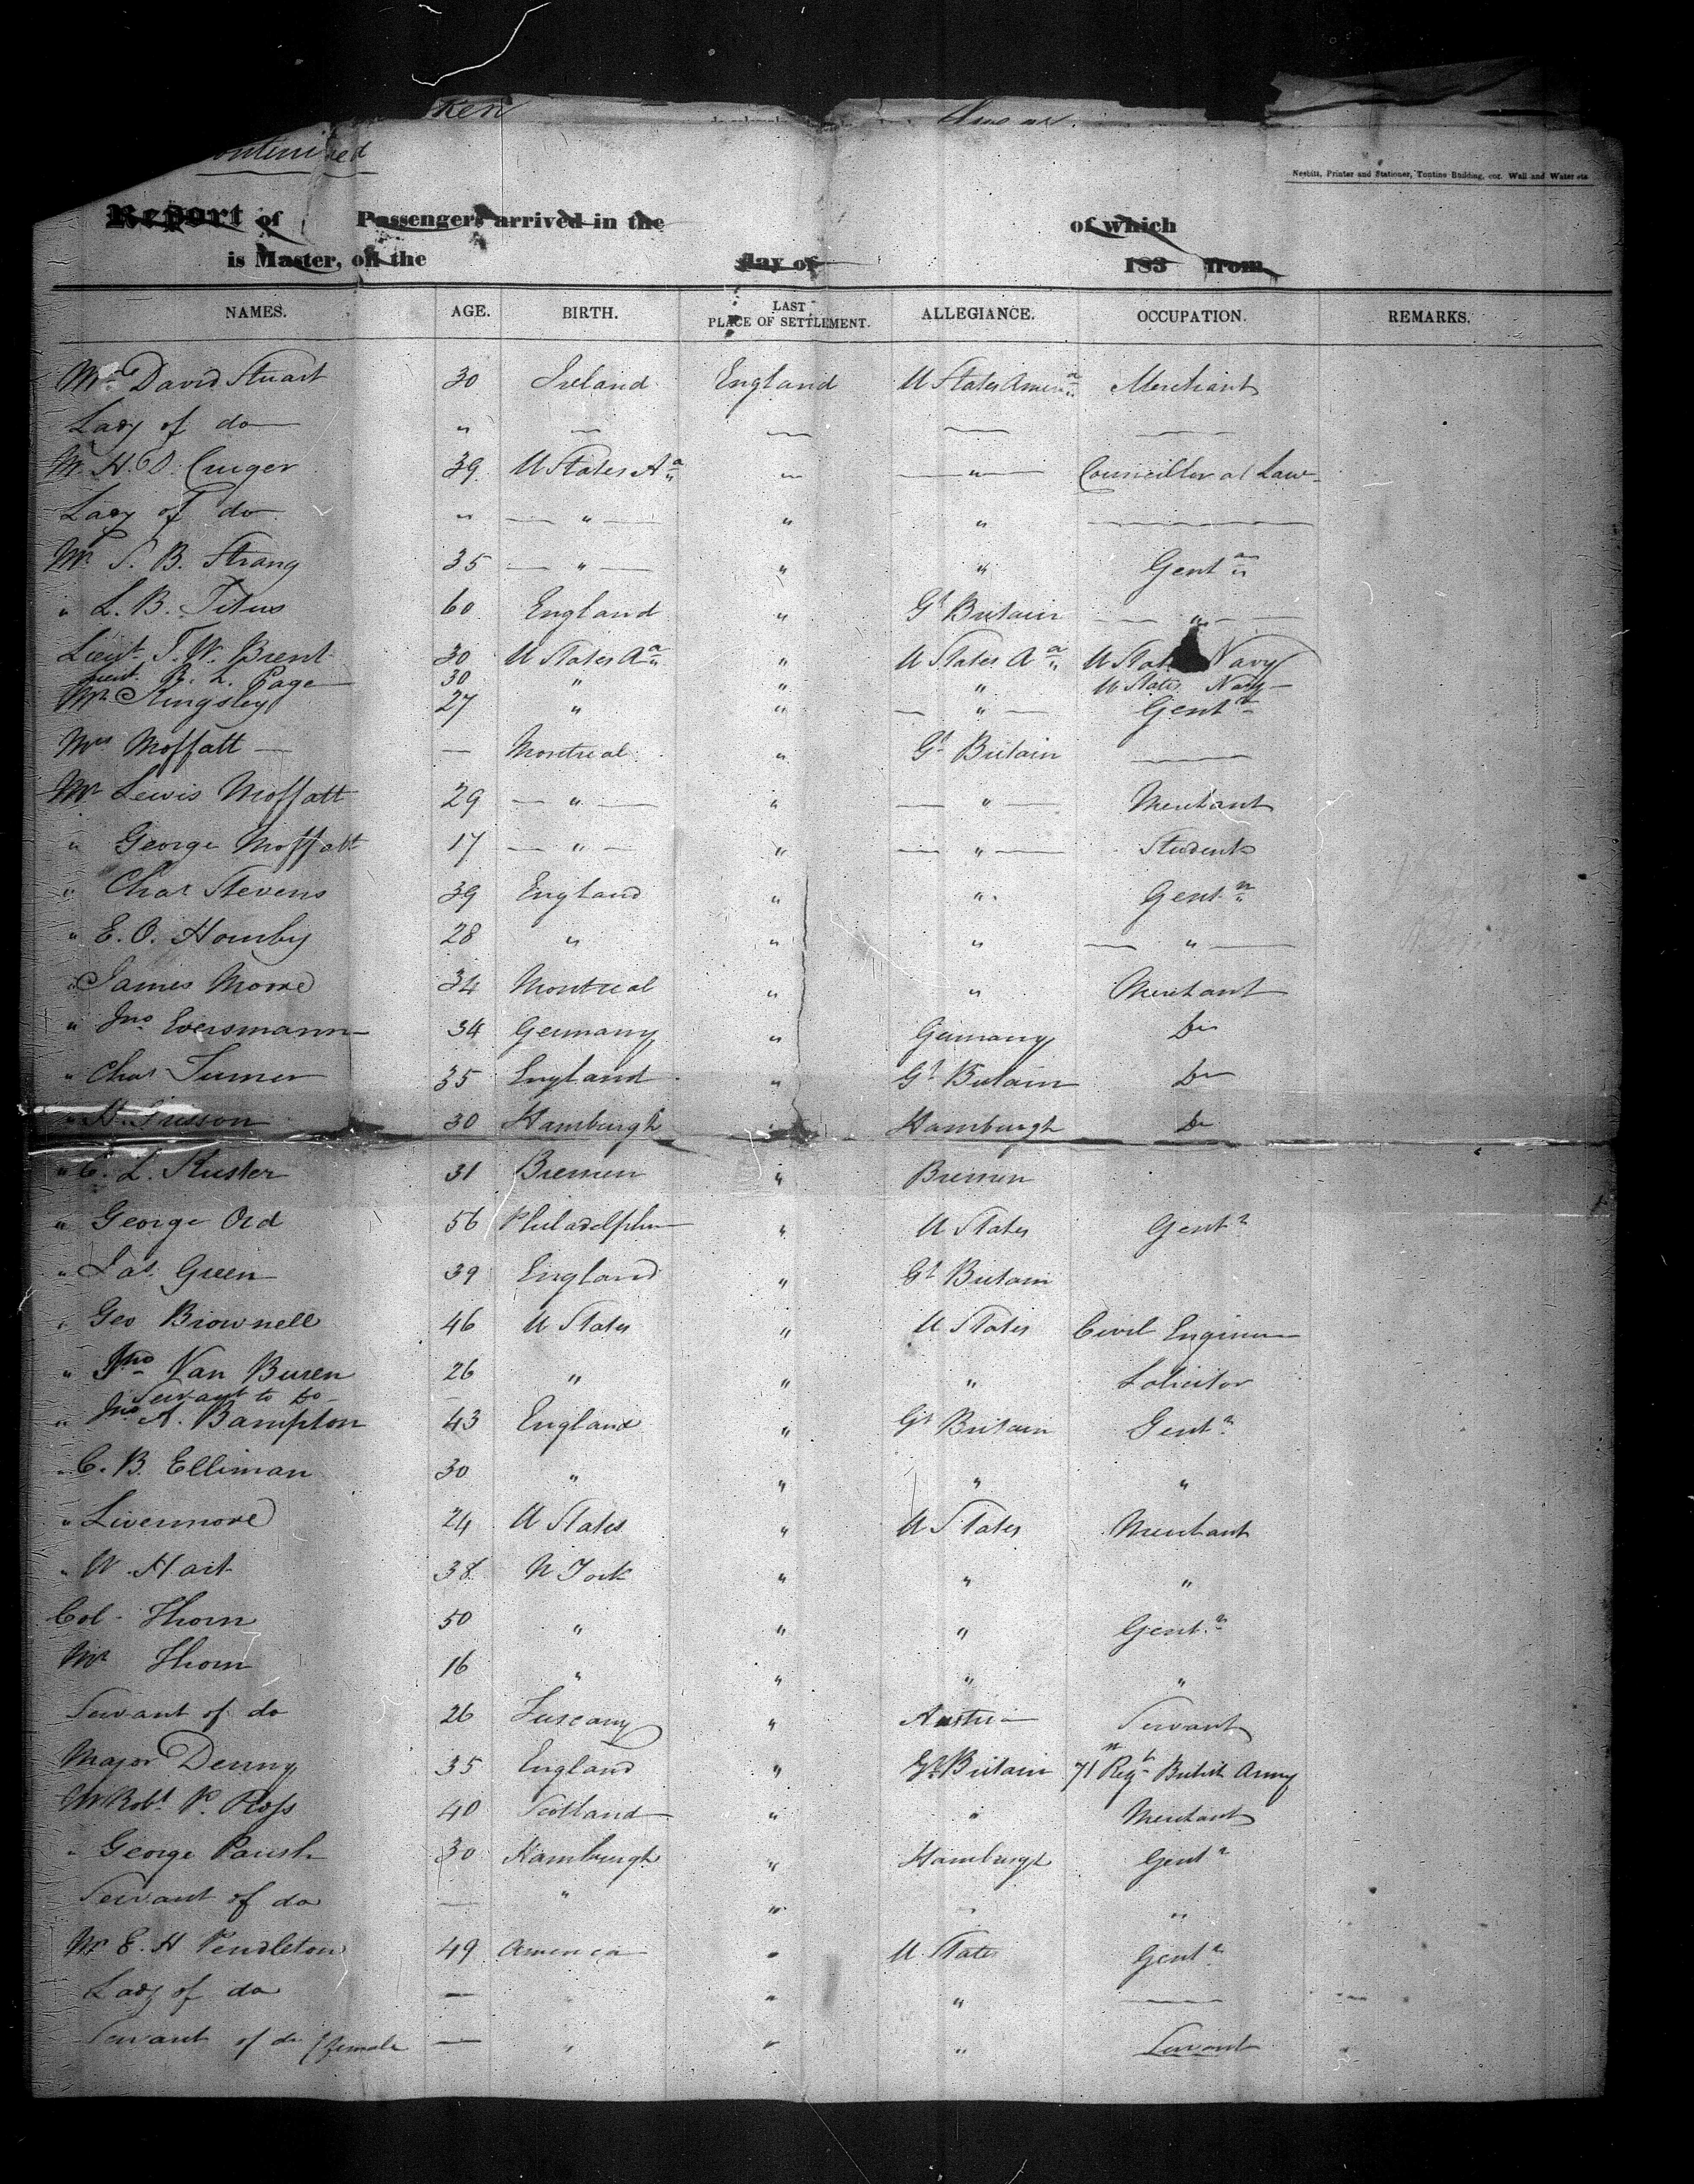 Continued
Nesbitt, Printer and Stationer, Tontine Building, cor. Wall and Water sts
Report of Passengers arrived in the of which
is Master, on the day of 183 from
NAMES. AGE. BIRTH. LAST PLACE OF SETTLEMENT. ALLEGIANCE. OCCUPATION. REMARKS.
Mr David Stuart 30 Ireland England U States Ameraa Merchant
Lady of do " — — — —
Mr H. D. Cruger 39 U States Aa " — " — Councillor at Law
Lady of do " — " — " " —
Mr S. B. Strang 35 — " — " " Gentn
" L. B. Titus 60 England " Gt Britain — " —
Lieut. T. W. Brent 30 U States Aa " U States Aa U States Navy
Lieut. R. L. Page 30 " " " U States Navy
Mr Kingsley 27 " " — " — Gentn
Mrs Moffatt — — Montreal " Gt Britain —
Mr Lewis Moffatt 29 — " — " — " — Merchant
" George Moffatt 17 — " — " — " — Student
" Chas Stevens 39 England " " Gentn
" E. O. Hornby 28 " " " — " —
" James Moore 34 Montreal " " Merchant
" Jno Eversmann 34 Germany " Germany Do
" Chas Turner 35 England " Gt Britain Do
" H. 30 Hamburgh " Hamburgh Do
" C. L. Kuster 31 Bremen " Bremen
" George Ord 56 Philadelphia " U States Gentn
" Jas. Green 39 England " Gt Britain
" Geo Brownell 46 U States " U States Civil Engineer
" Jno Van Buren 26 " " " Solicitor
Servant to Do —
" Jno A. Bampton 43 England " Gt Britain Gentn
" C. B. Elliman 30 " " " "
" Livermore 24 U States " U States Merchant
" W. Hart 38 N York " " "
Col. Thorn 50 " " " Gentn
Mr Thorn 16 " " " "
Servant of do 26 Tuscany " Austria Servant
Major Denny 35 England " Gt Britain 71st Regt British Army
Mr Robt P. Ross 40 Scotland " " Merchant
" George Parish 30 Hamburgh " Hamburgh Gentn
Servant of do — " " " "
Mr E. H Pendleton 49 America " U States Gentn
Lady of do — " " —
Servant of do female — " " " Servant